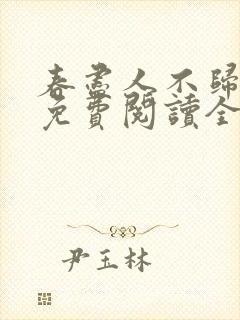 春盡人不歸
免費閱讀全
尹玉林